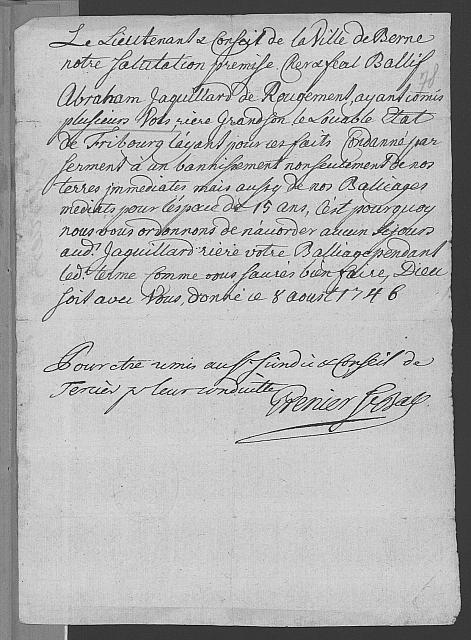 Le Lieutenant & Conseil de la Ville de Berne
notre salutation premise, Cher & feal Ballif
78
Abraham Jaquillard de Rougement, ayant comis
plusieurs Vols riere Grandson le Louable Etat
de Fribourg l'ayant pour ces faits Condanné par
serment à un bannissement non seulement de nos
terres immediates mais aussy de nos Balliages
mediats pour l'espace de 15 ans, C'est pourquoy
nous vous ordonnons de n'accorder aucun sejours
aud.t Jaquillard riere votre Balliage pendant
led.t terme comme vous saurés bien faire, Dieu
soit avec Vous, donné ce 8 aoust 1746
Pour etre remis au S.r Sindic & Conseil de
p.r leur conduitte
Grenier